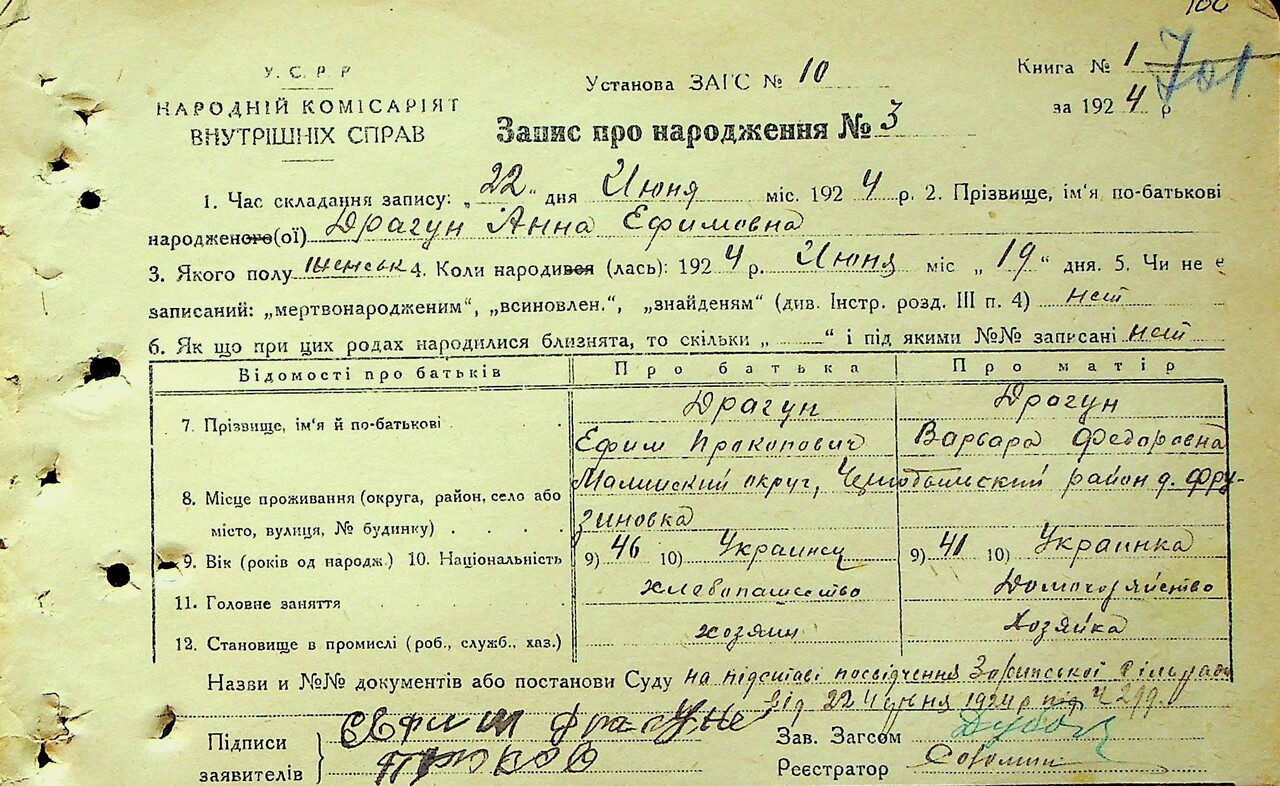 У. С. Р. Р
НАРОДНІЙ КОМІСАРІЯТ
ВНУТРІШНІХ СПРАВ
Установа ЗАГС № 10
Книга № 1 701
за 1924 р
Запис про народження № 3
1. Час складання запису: „22" дня Июня міс. 1924 р. 2. Прізвище, ім'я по-батькові
народженого(ої) Драгун Анна Ефимовна
3. Якого полу женськ 4. Коли народився (лась): 1924 р. Июня міс „19" дня. 5. Чи не є
записаний: „мертвонародженим", „всиновлен.", „знайденям" (див. Інстр. розд. III п. 4) нет
6. Як що при цих родах народилися близнята, то скільки „ " і під якими №№ записані нет
Відомості про батьків Про батька Про матір
7. Прізвище, ім'я й по-батькові Драгун Драгун
Ефим Прокопович Варвара Федоровна
8. Місце проживання (округа, район, село або Малинский округ, Чернобыльский район д. Фру-
місто, вулиця, № будинку) зиновка
9. Вік (років од народж.) 10. Національність 9) 46 10) Украинец 9) 41 10) Украинка
11. Головне заняття хлебопашество Домохозяйство
12. Становище в промислі (роб., служб., хаз.) хозяин Хозяйка
Назви и №№ документів або постанови Суду на підставі посвідчення Сільради
від 22 1924 р під Ч 299.
Підписи Ефим Зав. Загсом
заявителів Реєстратор